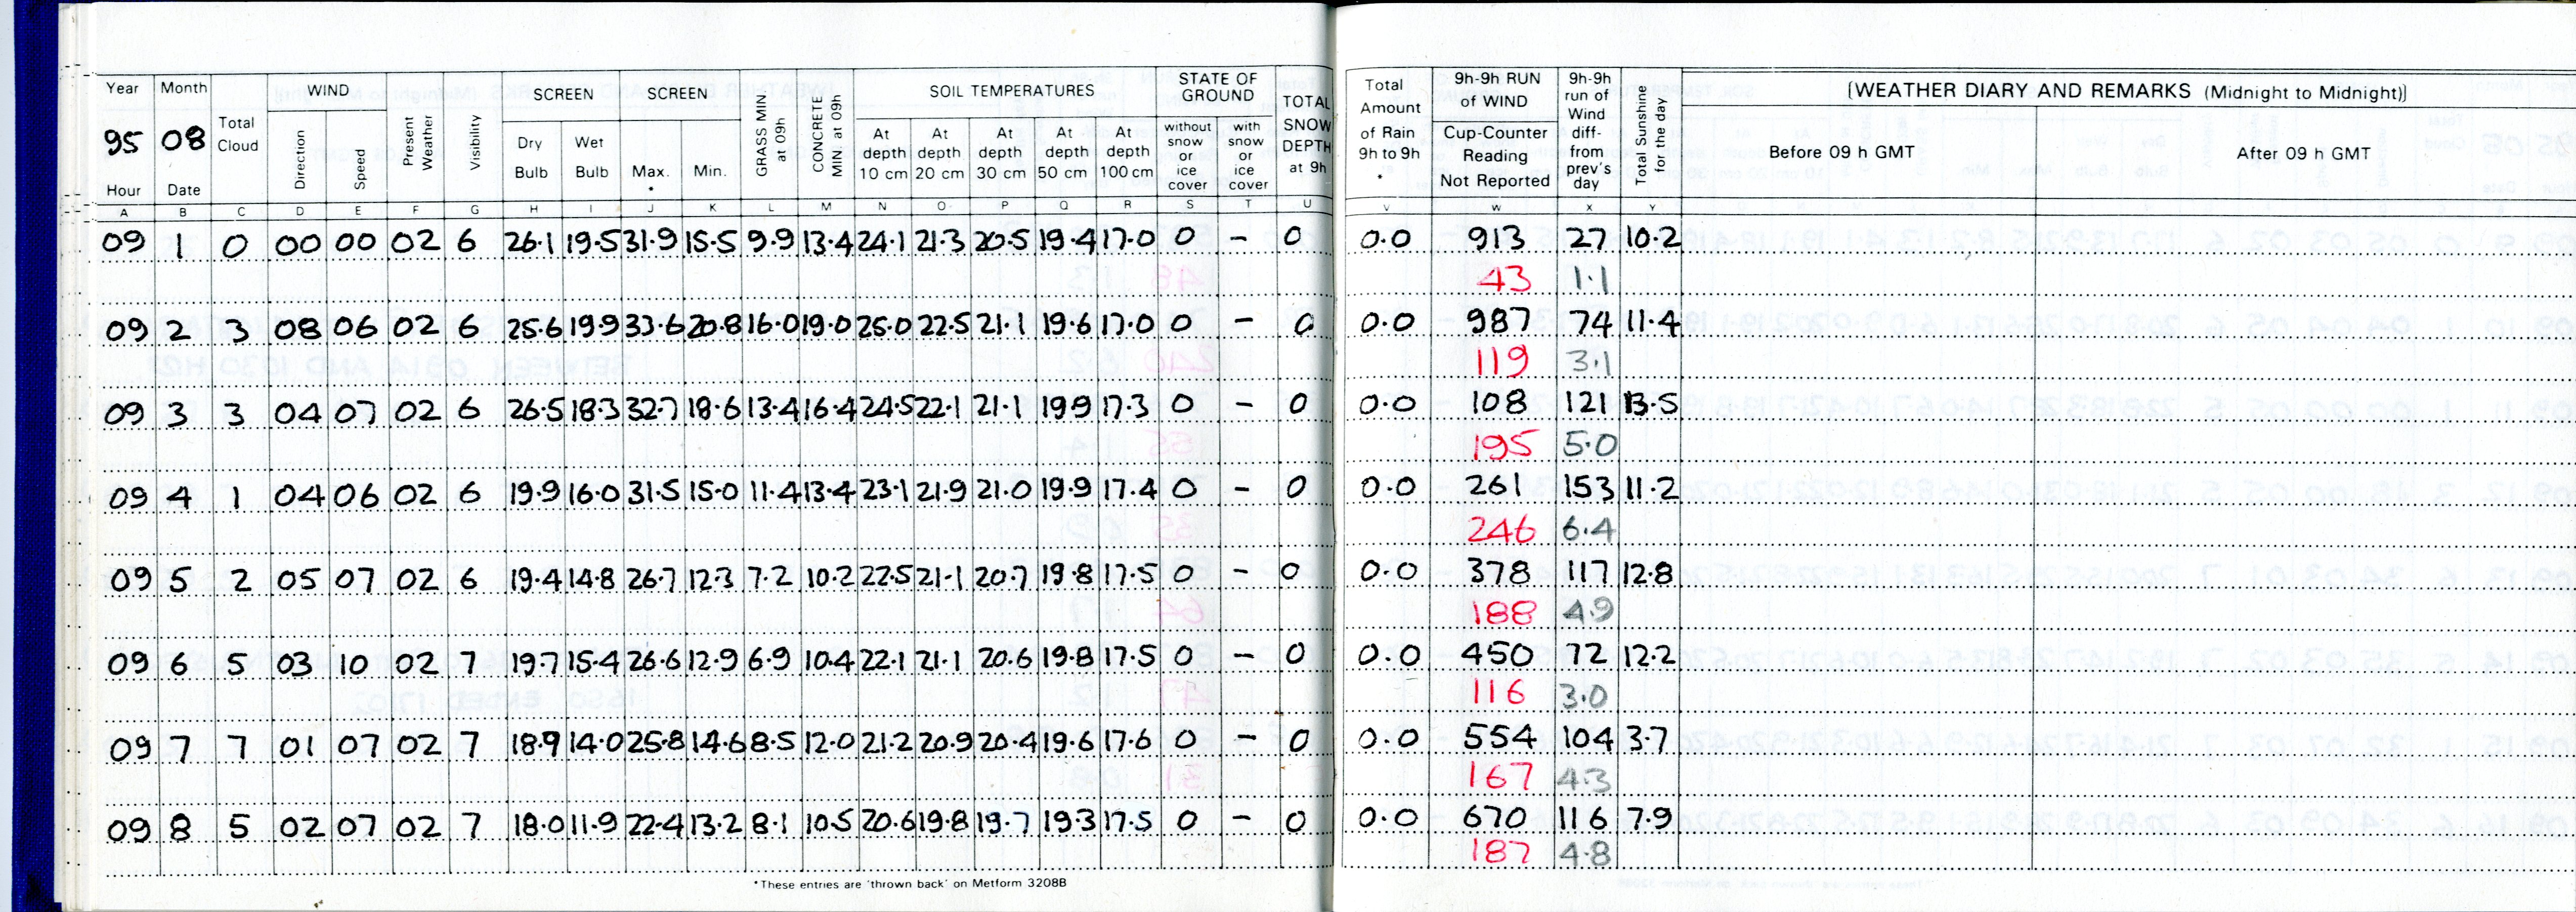 Year Month Total Cloud WIND Present Weather Visibility SCREEN SCREEN GRASS MIN at 09h CONCRETE MIN at 09h SOIL TEMPERATURES STATE OF GROUND TOTAL SNOW DEPTH at 9h Total Amount of Rain 9h to 9h * 9h-9h RUN of WIND 9h-9h run of Wind diff- from prev's day Total Sunshine for the day [WEATHER DIARY AND REMARKS (Midnight to Midnight)]
95 08 Direction Speed Dry Bulb Wet Bulb Max. * Min. At depth 10 cm At depth 20 cm At depth 30 cm At depth 50 cm At depth 100 cm without snow or ice cover with snow or ice cover Cup-Counter Reading Not Reported Before 09 h GMT After 09 h GMT
Hour Date
A B C D E F G H I J K L M N O P Q R S T U V W X Y
09 1 0 00 00 02 6 26.1 19.5 31.9 15.5 9.9 13.4 24.1 21.3 20.5 19.4 17.0 0 - 0 0.0 913 27 10.2
43 1.1
09 2 3 08 06 02 6 25.6 19.9 33.6 20.8 16.0 19.0 25.0 22.5 21.1 19.6 17.0 0 - 0 0.0 987 74 11.4
119 3.1
09 3 3 04 07 02 6 26.5 18.3 32.7 18.6 13.4 16.4 24.5 22.1 21.1 19.9 17.3 0 - 0 0.0 108 121 13.5
195 5.0
09 4 1 04 06 02 6 19.9 16.0 31.5 15.0 11.4 13.4 23.1 21.9 21.0 19.9 17.4 0 - 0 0.0 261 153 11.2
246 6.4
09 5 2 05 07 02 6 19.4 14.8 26.7 12.3 7.2 10.2 22.5 21.1 20.7 19.8 17.5 0 - 0 0.0 378 117 12.8
188 4.9
09 6 5 03 10 02 7 19.7 15.4 26.6 12.9 6.9 10.4 22.1 21.1 20.6 19.8 17.5 0 - 0 0.0 450 72 12.2
116 3.0
09 7 7 01 07 02 7 18.9 14.0 25.8 14.6 8.5 12.0 21.2 20.9 20.4 19.6 17.6 0 - 0 0.0 554 104 3.7
167 4.3
09 8 5 02 07 02 7 18.0 11.9 22.4 13.2 8.1 10.5 20.6 19.8 19.7 19.3 17.5 0 - 0 0.0 670 116 7.9
187 4.8
*These entries are 'thrown back' on Metform 3208B